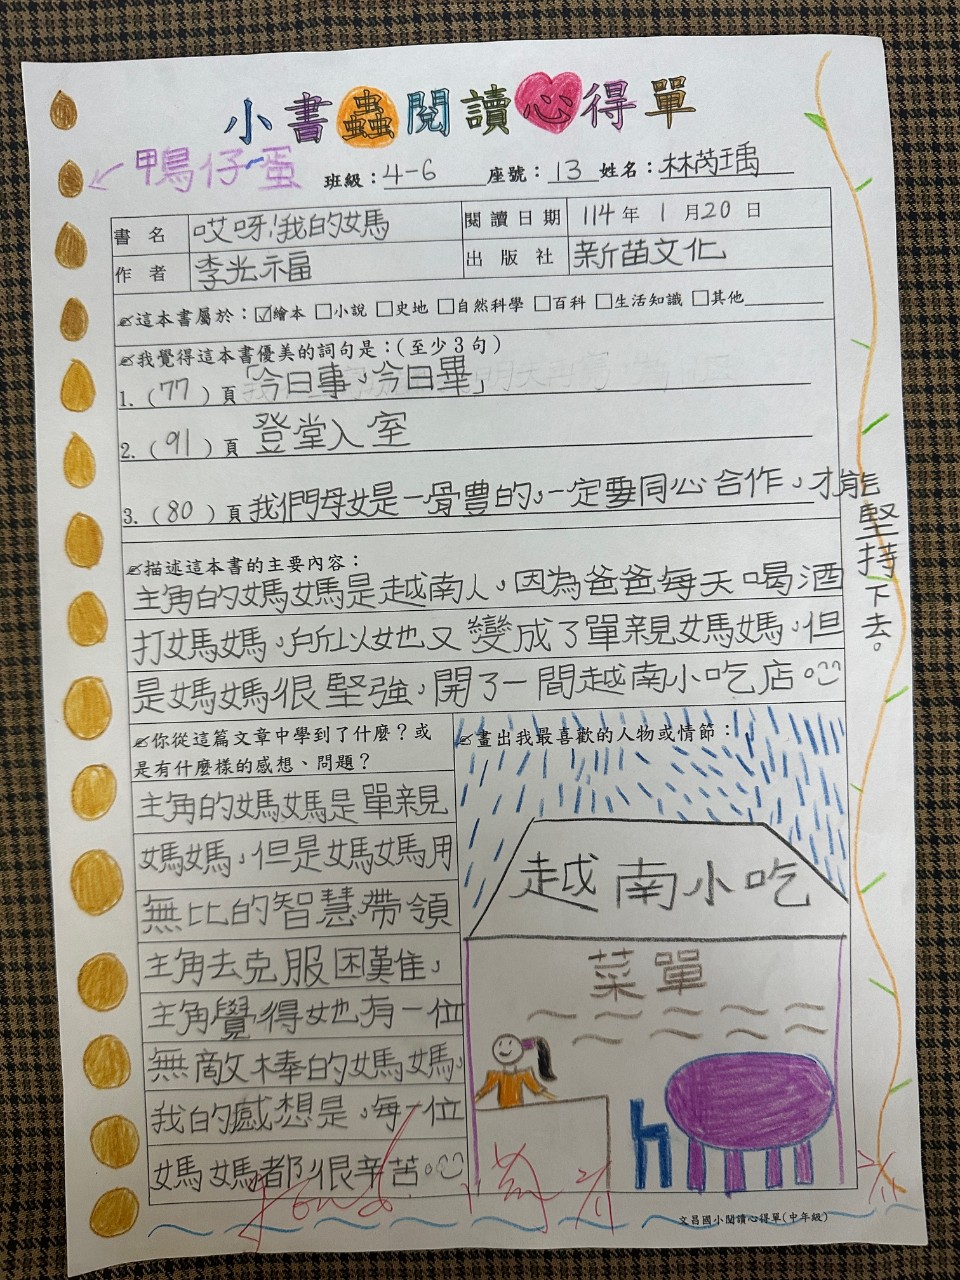 小書蟲閱讀心得單
鴨仔蛋
班級：4-6 座號：13 姓名：林芮瑀
書名 哎呀！我的媽 閱讀日期 114年1月20日
作者 李光福 出版社 新苗文化
這本書屬於：☑繪本 □小說 □史地 □自然科學 □百科 □生活知識 □其他
我覺得這本書優美的詞句是：(至少3句)
1.(77)頁「今日事，今日畢」
2.(91)頁 登堂入室
3.(80)頁 我們母女是一骨豊的，一定要同心合作，才能堅持下去。
描述這本書的主要內容：
主角的媽媽是越南人，因為爸爸每天喝酒
打媽媽，所以她又變成了單親媽媽，但
是媽媽很堅強，開了一間越南小吃店。
你從這篇文章中學到了什麼？或
是有什麼樣的感想、問題？
主角的媽媽是單親
媽媽，但是媽媽用
無比的智慧帶領
主角去克服困難，
主角覺得她有一位
無敵棒的媽媽，
我的感想是，每一位
媽媽都很辛苦。
畫出我最喜歡的人物或情節：
越南小吃
菜單
文昌國小閱讀心得單(中年級)